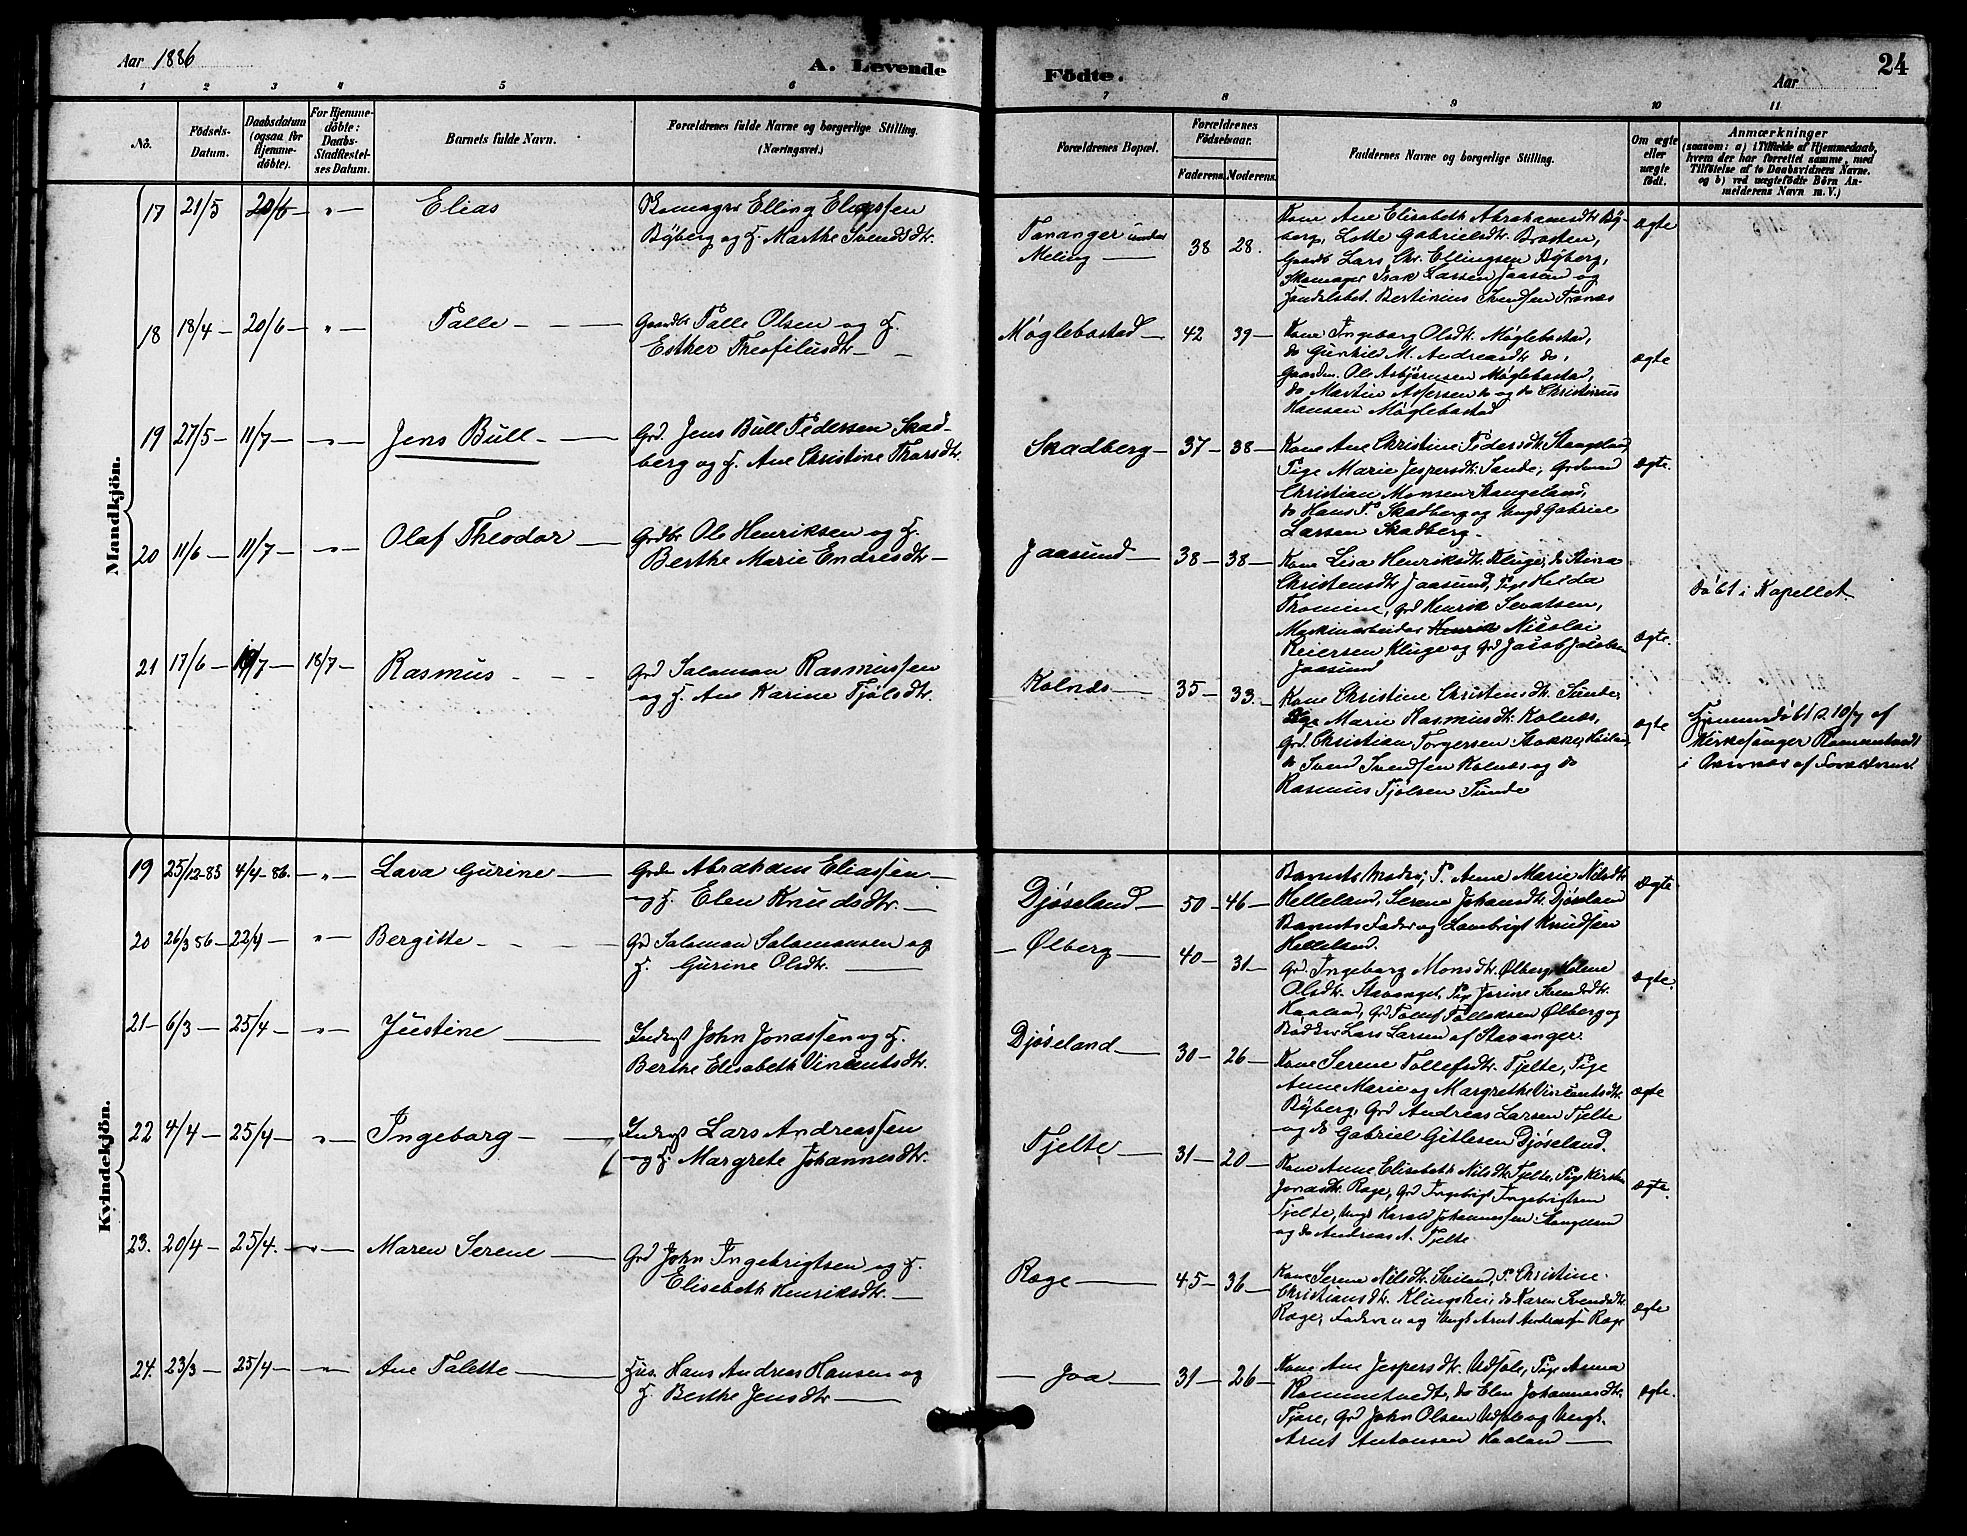 Aar 1886
A. Levende Födte.
Aar
24
1 2 3 4 5 6 7 8 9 10 11
No.
Födsels-Datum.
Daabsdatum (ogsaa for Hjemmedöbte).
For Hjemmedöbte: Daabs-Stadfæstelses Datum.
Barnets fulde Navn.
Forældrenes fulde Navne og borgerlige Stilling. (Næringsvei.)
Forældrenes Bopæl.
Forældrenes Födselsaar.
Faderens. Moderens.
Faddernes Navne og borgerlige Stilling.
Om ægte eller uægte födt.
Anmærkninger
(saasom: a) i Tilfælde af Hjemmedaab, hvem der har forrettet samme, med Tilföielse af to Daabsvidners Navne. og b) ved uægtefödte Börn Anmelderens Navn m. V.)
Mandkjön.
17 21/5 20/6 „ Elias
Skomager Elling Eliassen
Byberg og H. Marthe Svendsdtr.
Tananger under
Meling 38 28.
Kone Ane Elisabeth Abrahamsdtr By-
berg, Lotte Gabrielsdtr. Brasten,
Gaardb Lars Chr. Ellingsen Byberg,
Skomager Isak Larsen Jaasund og
Handelsbet. Bertinius Svendsen Tranæs
ægte
18 18/4 20/6 „ Talle
Gaardbr Talle Olsen og H.
Esther Theofilusdtr
Møglebostad 42 39
Kone Ingeborg Olsdtr. Møglebostad,
do Gunhild M. Andreasdtr do,
Gaardm. Ole Asbjørnsen Møglebostad,
do Martin Aspersen do og do Christinus
Hansen Møglebostad
ægte
19 27/5 11/7 „ Jens Bull
Grd. Jens Bull Pedersen Skad-
berg og H. Ane Christine Thorsdtr.
Skadberg 37 38
Kone Ane Christine Pedersdtr. Stangeland,
Pige Marie Jespersdtr. Sande, Grdmd
Christian Monsen Stangeland,
do Hans P. Skadberg og Ungk Gabriel
Larsen Skadberg.
ægte
20 11/6 11/7 „ Olaf Theodor
Grdbr Ole Henriksen og H.
Berthe Marie Endresdtr
Jaasund 38 38
Kone Lisa Henriksdtr. Kluge, do Stina
Christensdtr Jaasund, Pige Helda
Tromine, Grd Henrik Seratsen,
Maskinarbeider Henrik Nicolai
Reiersen Kluge og Grd Jacob Jacobsen
Jaasund
ægte
Døbt i Kapellet.
21 17/6 18/7 18/7 Rasmus
Grd Salamon Rasmussen
og H. Ane Karine Tjølsdtr.
Kolnæs 35 33.
Kone Christine Christensdtr. Sunde,
Pige Marie Rasmusdtr. Kolnæs,
Grd. Christian Torgersen Stokke,
do Svend Svendsen Kolnæs og do
Rasmus Tjølsen Sunde
ægte
Hjemmedøbt d. 10/7 af
Kirkesanger Rommetvedt
i Overvær af Forældrene.
Kvindekjön.
19 25/12-85 4/4-86. „ Lava Gurine
Grdm Abraham Eliassen
og H. Elen Knudsdtr.
Djøseland 50 46
Barnets Moder, P. Anne Marie Nilsdtr
Helleland, Serene Johansdtr. Djøseland
Barnets Fader og Lambrigt Knudsen
Helleland.
Ægte
20 26/3 86 22/4 „ Bergitte
Grd Salamon Salamonsen og
H. Gurine Olsdtr.
Ølberg 40 31
Grd. Ingeborg Monsdtr. Ølberg, Helene
Olsdtr. Stavanger, Pige Jorine Svendsdtr.
Haaland, Grd Tollef Tollefsen Ølberg og
Bødker Lars Larsen af Stavanger.
ægte.
21 6/3 25/4 „ Justine
Inderst John Jonassen og H.
Berthe Elisabeth Vincentsdtr.
Djøseland 30 26
Kone Serene Tollefsdtr. Tjelte, Pige
Anne Marie og Margrethe Vincentsdtr.
Byberg, Grd Andreas Larsen Tjelte
og do Gabriel Gitlesen Djøseland.
ægte
22 4/4 25/4 „ Ingeborg
Inderst Lars Andreassen
og H. Margrete Johannesdtr.
Tjelte 31 20
Kone Anne Elisabeth Nilsdtr. Tjelte, Pige Kirsten
Jonasdtr. Røge, Grd Ingebrigt Ingebrigtsen
Tjelte, Ungk Harald Johannessen Stangeland
og do Andreas A. Tjelte
ægte.
23. 20/4 25/4. „ Maren Serene
Grd John Ingebrigtsen og H.
Elisabeth Henriksdtr.
Røge 45 36
Kone Serene Nilsdtr. Skeiland, P. Christine
Christiansdtr. Klingshei, do Karen Svendsdtr.
Røge, Faderen og Ungk Arnt Andreassen Røge
ægte
24. 23/3 25/4 „ Ane Talette
Hus. Hans Andreas Hansen og
H. Berthe Jensdtr
Joa 31 26
Kone Ane Jespersdtr. Udsole, Pige Anna
Rommetvedt, do Elen Johannesdtr.
Tjøre, Grd John Olsen Udsole og Ungk.
Arnt Antonsen Haaland
ægte.